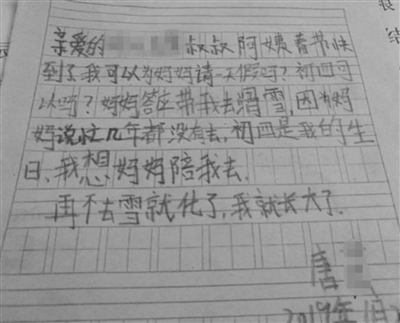 亲爱的 叔叔阿姨春节快
到了我可以为妈妈请一天假吗？初四可
以吗？妈妈答应带我去滑雪，因为妈
妈说忙几年都没有去，初四是我的生
日，我想妈妈陪我去、
再不去雪就化了，我就长大了.
唐
2019年1月2